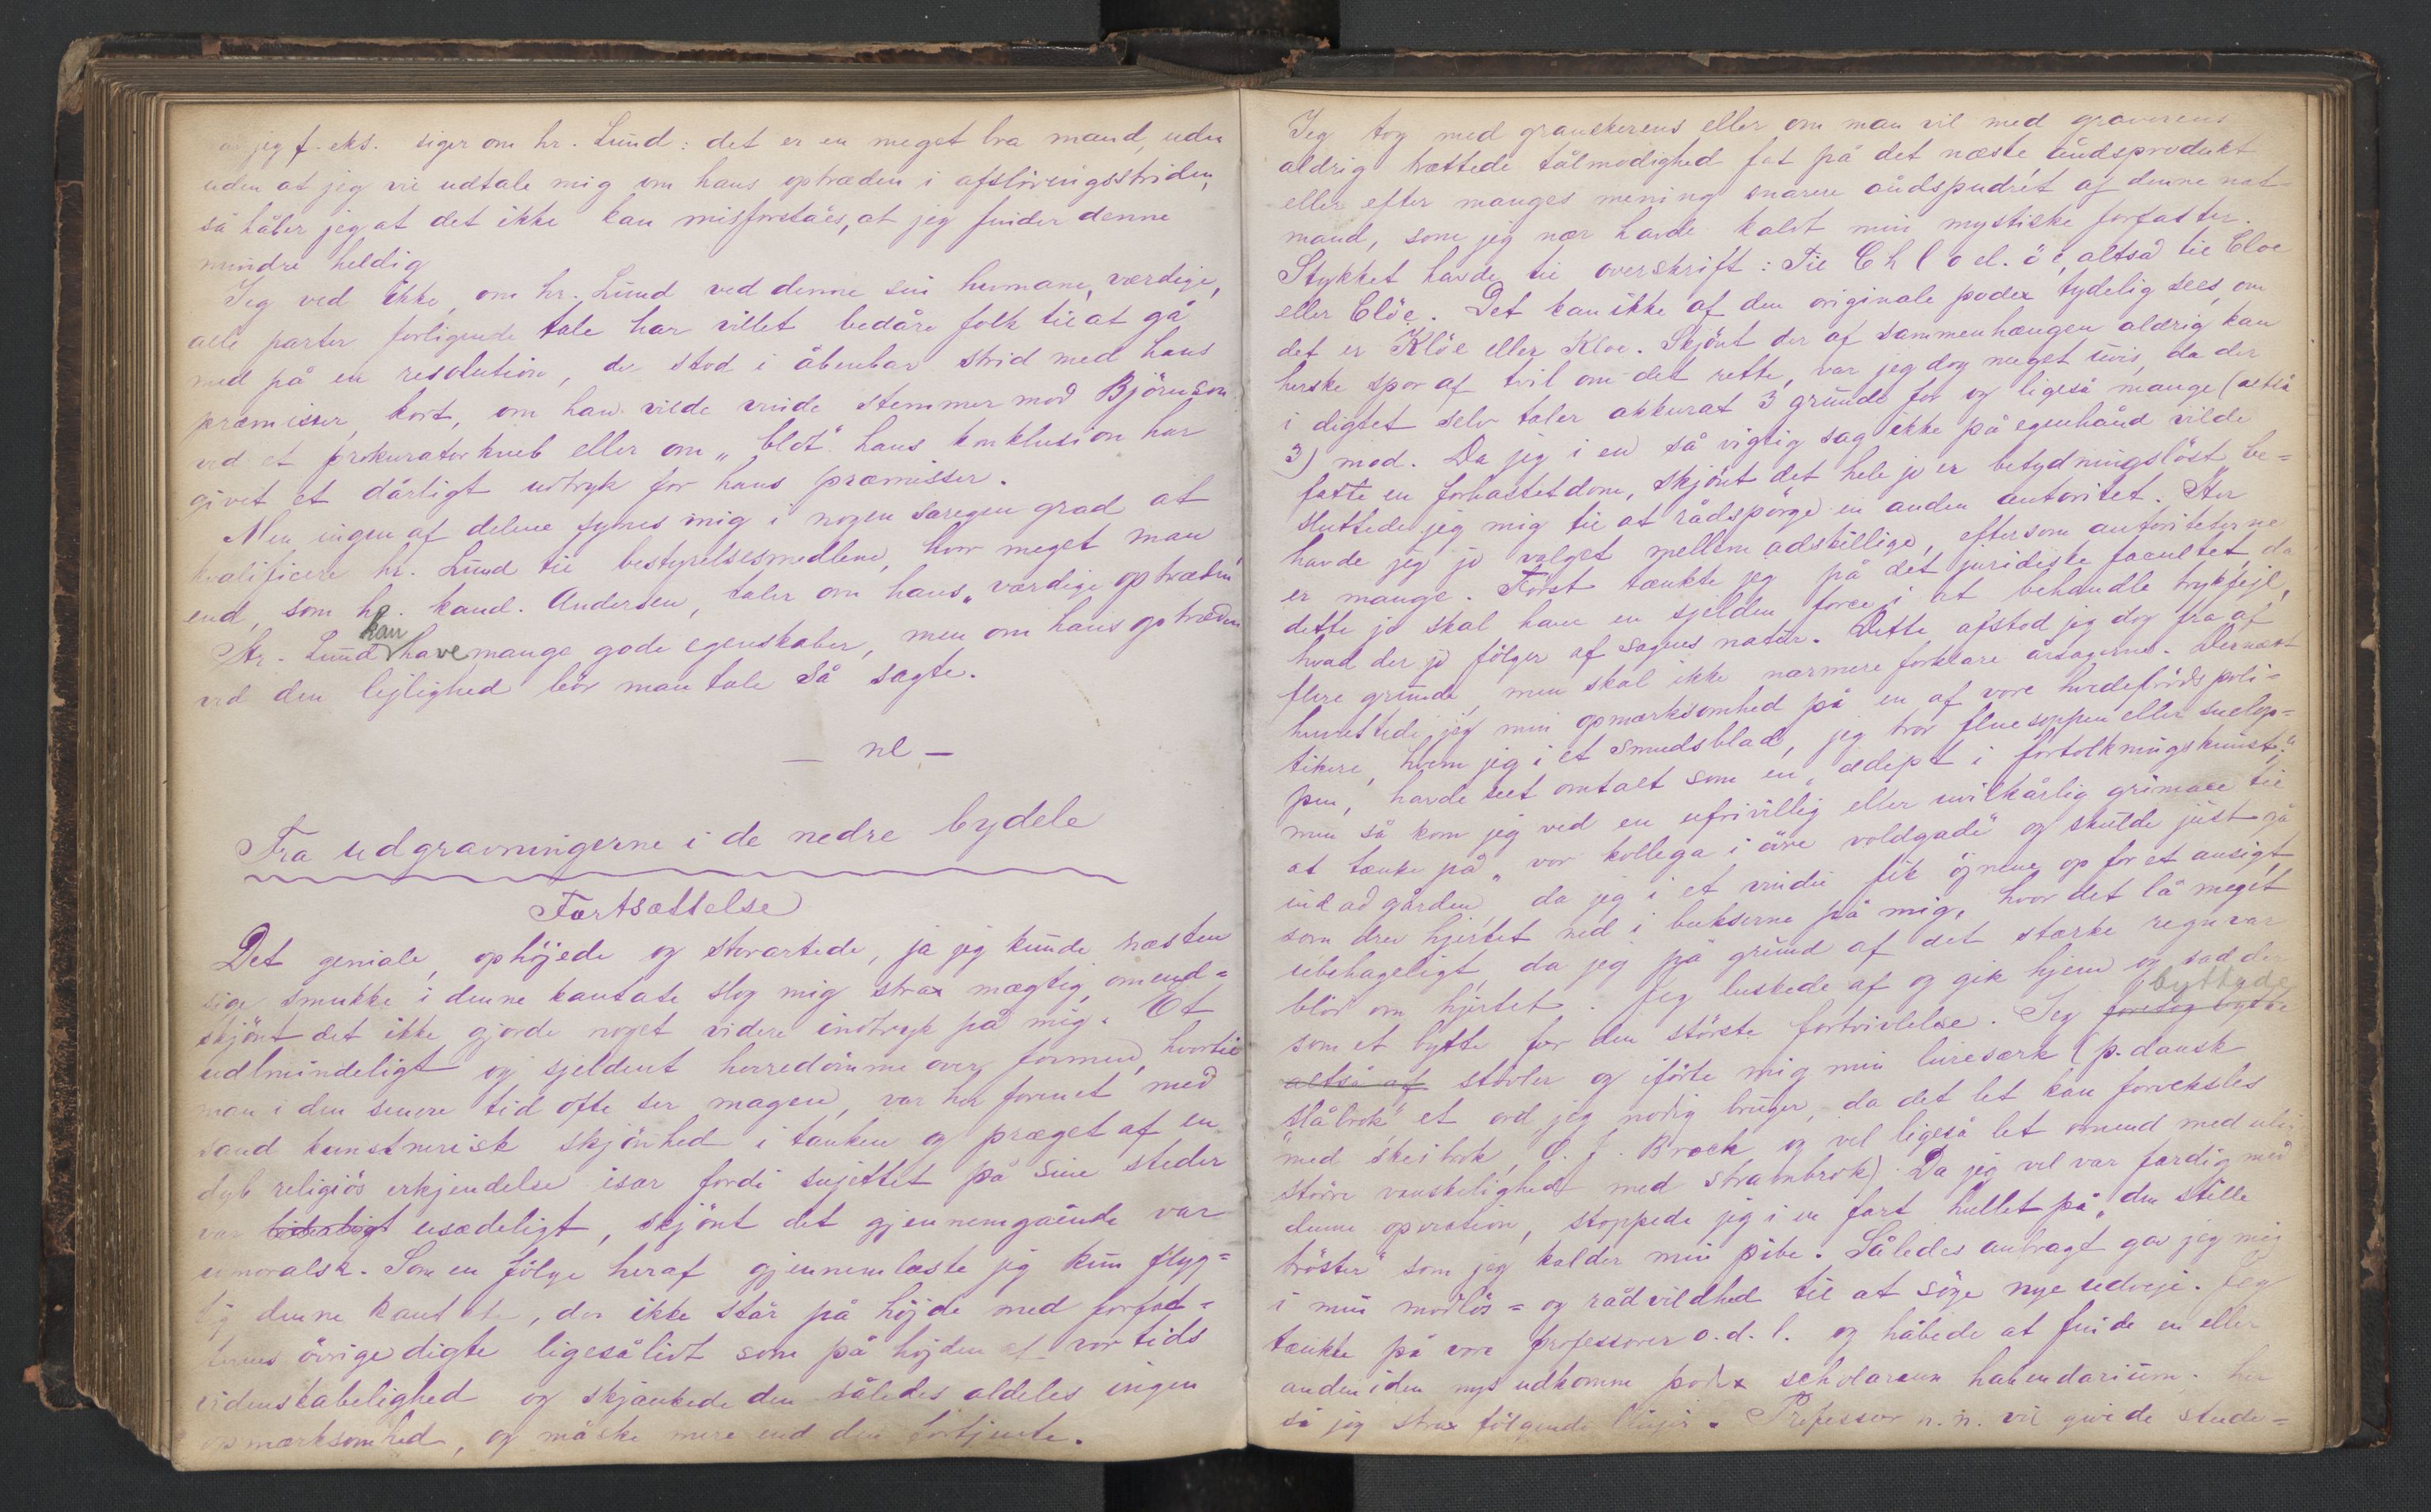 jeg f. eks. siger om hr. Lund: det er en meget bra mand, uden
uden at jeg vil udtale mig om hans optræden i afsløringsstriden,
så håber jeg at det ikke kan misforståes, at jeg finder denne
mindre heldig
Jeg ved ikke, om hr. Lund ved denne sin humane, værdige,
alle parter forligende tale har villet bedåre folk til at gå
med på en resolution, der stod i åbenbar strid med hans
præmisser, kort, om han vilde vinde stemmer mod Björnson
ved et prokuratorkneb eller om „blot“ hans konklusion har
givet et dårligt udtryk for hans præmisser.
Men ingen af delene synes mig i nogen særegen grad at
kvalificere hr. Lund til bestyrelsesmedlem, hvor meget man
end, som hr. kand. Andersen, taler om hans „værdige optræden“
Hr. Lund kan have mange gode egenskaber, men om hans optræden
ved den lejlighed bör man tale så sagte.
— ne —
Fra udgravningerne i de nedre bydele
Fortsættelse
Det geniale, ophöjede og storartede, ja jeg kunde næsten
sige smukke i denne kantate slog mig strax mægtig, omend=
skjönt det ikke gjorde noget videre indtryk på mig. Et
udlmindeligt og sjeldent herredömme over formen, hvortil
man i den senere tid ofte ser magen, var her forenet med
sand kunstnerisk skjönhed i tanken og præget af en
dyb religiös erkjendelse især fordi sujettet på sine steder
var usædeligt, skjönt det gjennemgående var
umoralsk. Som en fölge heraf gjennemlæste jeg kun flyg=
tig denne kantate, der ikke står på höjde med forfat=
terens övrige digte ligesålidt som på höjden af vor tids
videnskabelighed og skjænkede den således aldeles ingen
opmærksomhed, og måske mere end den fortjente.
Jeg tog med granskerens eller om man vil med graverens
aldrig trættede tålmodighed fat på det næste åndsprodukt
eller efter manges mening snarere åndspudrét af denne nat=
mand, som jeg nær havde kaldt min mystiske forfatter.
Stykket havde til overskrift: Til Chlo el. öe, altså til Cloe
eller Clöe. Det kan ikke af den originale podex tydelig sees, om
det er Klöe eller Kloe. Skjönt der af sammenhængen aldrig kan
herske spor af tvil om det rette, var jeg dog meget uvis, da der
i digtet selv taler akkurat 3 grunde for og ligeså mange (altså
3) mod. Da jeg i en så vigtig sag ikke på egenhånd vilde
fatte en forhastet dom, skjönt det hele jo er betydningslöst, be=
sluttede jeg mig til at rådspörge en anden autoritet. Her
havde jeg jo valget mellem adskillige, eftersom autoriteterne
er mange. Fört tænkte jeg på det juridiske facultet, da
dette jo skal have en sjelden force i at behandle trykfejl,
hvad der jo fölger af sagens natur. Dette afstod jeg dog fra af
flere grunde, men skal ikke nærmere forklare årsagerne. Dernæst
henvendte jeg min opmærksomhed på en af vore hvedebröds poli=
tikere, hvem jeg i et smudsblad, jeg tror fluesoppen eller snelop=
pen, havde seet omtalt som en „adept i fortolkningskunst;“
men så kom jeg ved en ufrivillig eller uvilkårlig grimace til
at tænke på „vor kollega i övre voldgade“ og skulde just gå
ind ad gården da jeg i et vindu fik öjnene op for et ansigt,
som drev hjertet ned i bukserne på mig, hvor det lå meget
ubehageligt, da jeg på grund af det stærke regn var
blöd om hjertet. Jeg luskede af og gik hjem og sad der
som et bytte for den störste fortvivlelse. Jeg byttede
altså af stövler og iförte mig min luresærk (p. dansk
„slåbrok“ et ord jeg nödig bruger, da det let kan forveksles
med skeibrok, O. J. Brock og vel ligeså let omend med
större vanskelighed med strambrok). Da jeg vel var færdig med
denne operation, stoppede jeg i en fart hullet på „den stille
tröster“ som jeg kalder min pibe. Således anbragt gav jeg mig
i min modlös= og rådvildhed til at söge nye udveje. Jeg
tænkte på vore professorer o.d.l. og håbede at finde en eller
anden i den nys udkomne podex scholarum habendarium. her
så jeg strax fölgende linjer. Professor n.n. vil give de stude=